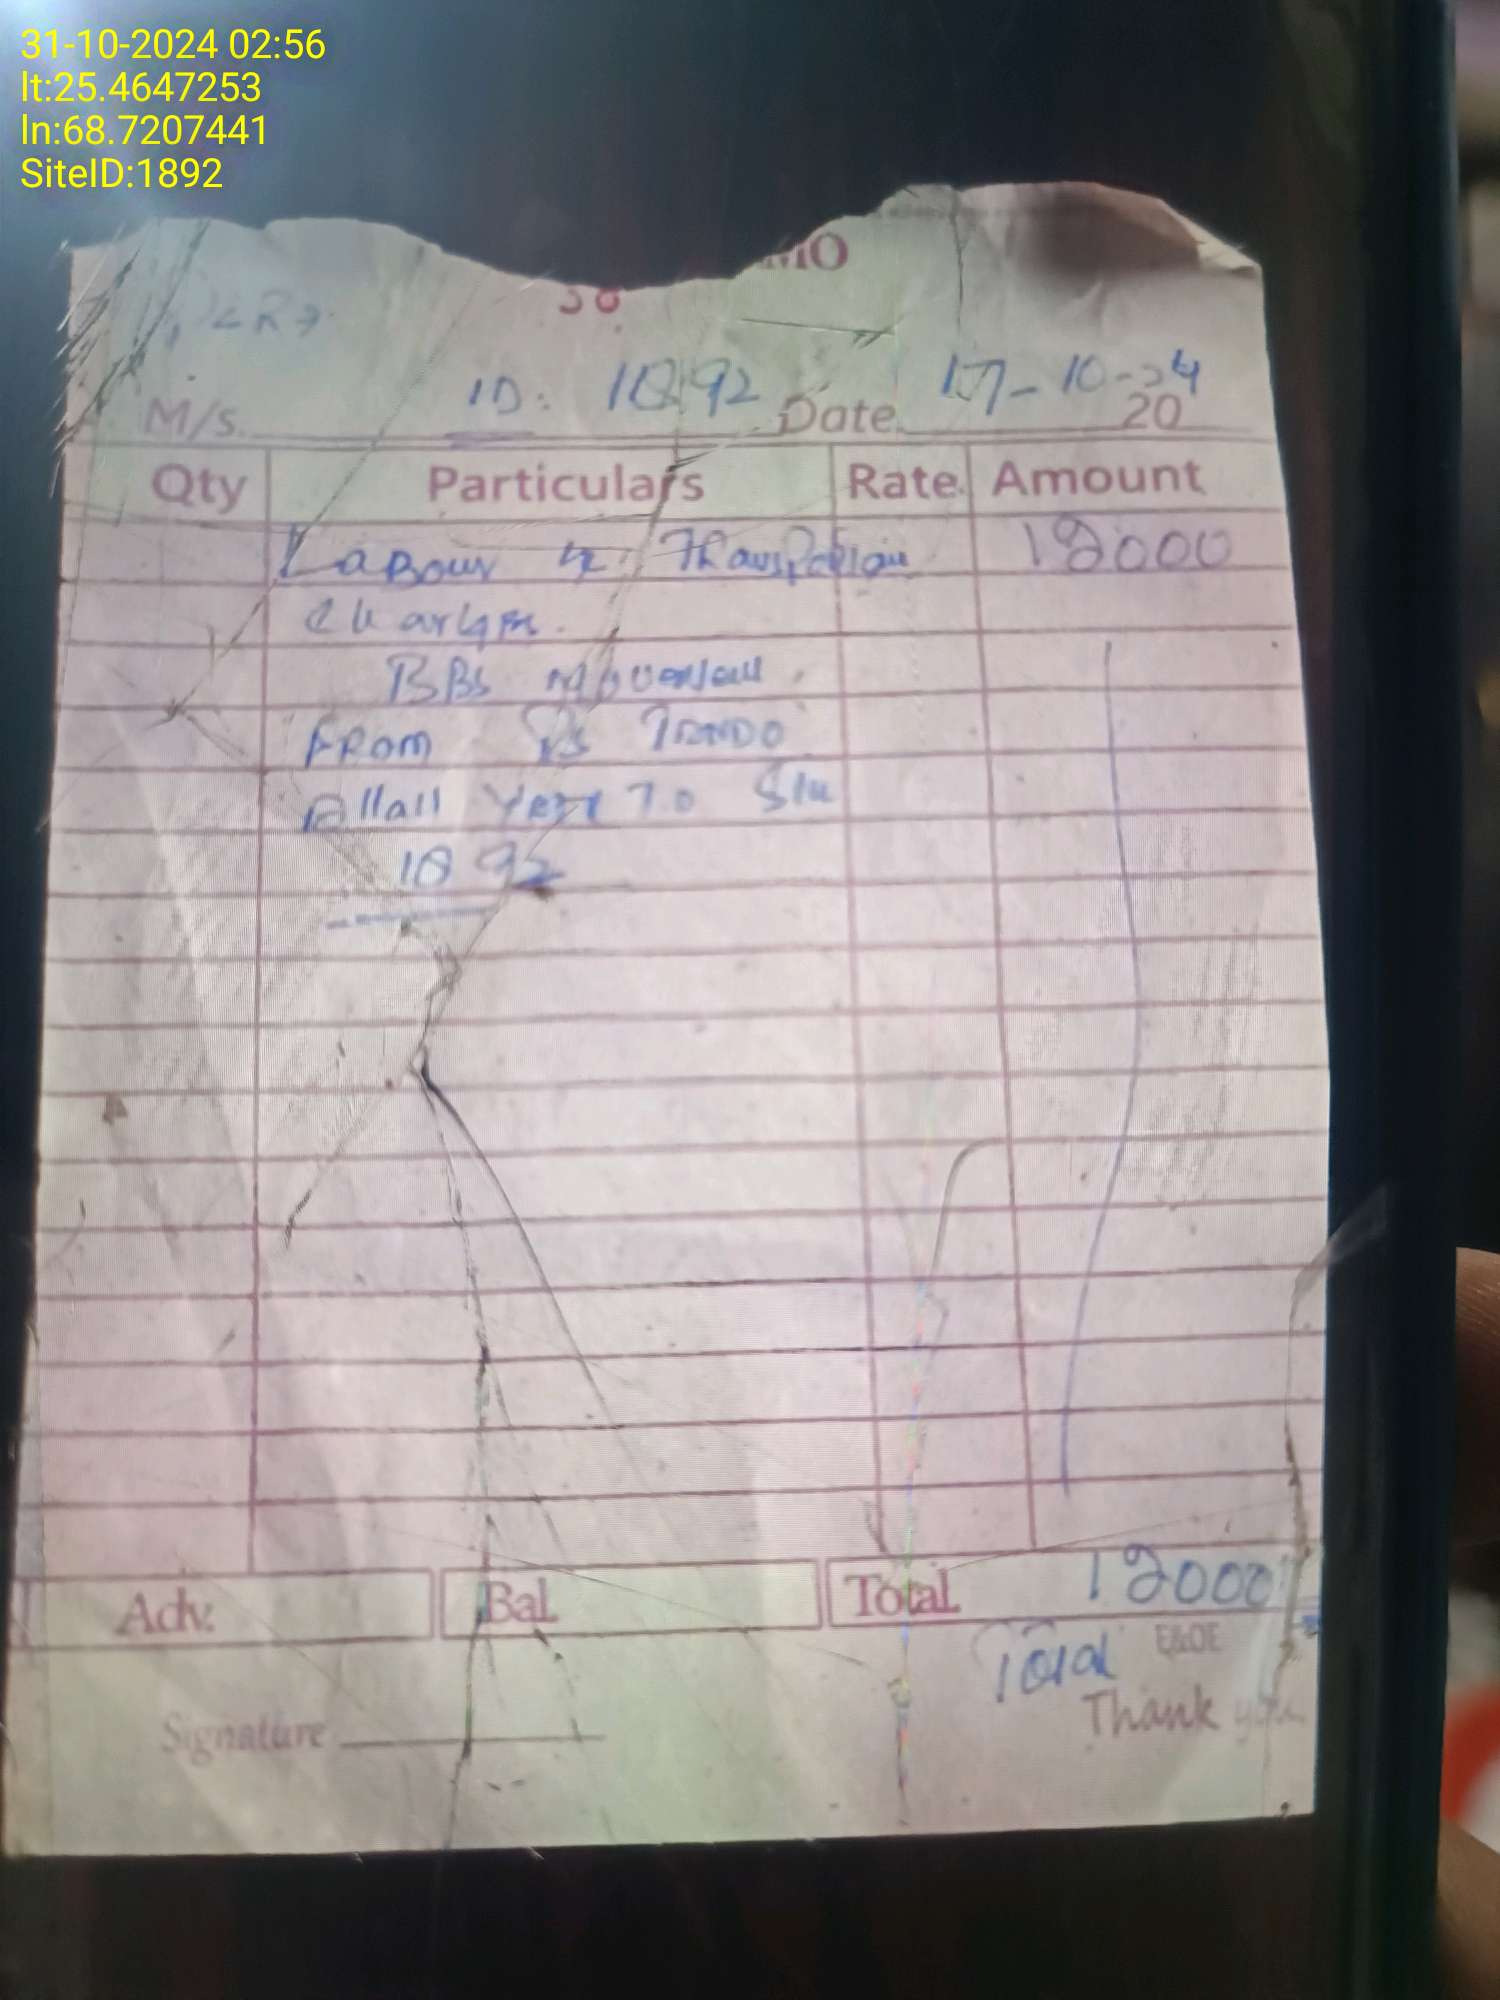 31-10-2024 02:56
lt:25.4647253
ln:68.7207441
SiteID:1892
MO
38
ID: 1892
17-10-24
M/s. Date 20
Qty Particulars Rate Amount
Labour & Transportation 12000
Charges.
BBs Movement
From Tando
Allah Yar To Site
1892
Adv. Bal. Total 12000
Total E&OE
Thank you
Signature